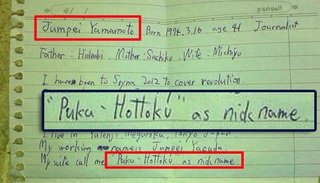 Jumpei Yamamoto Born 1974.3.16 age 41 Journalist
Father: Hideaki Mother: Sachiko Wife: Michiyo
I have been to Syria, 2012 to cover revolution.
"Puku-Hottoku" as nickname.
I live in Meguroku, Tokyo Japan
My working name is Jumpei Yasuda
My wife call me "Puku-Hottoku" as nickname